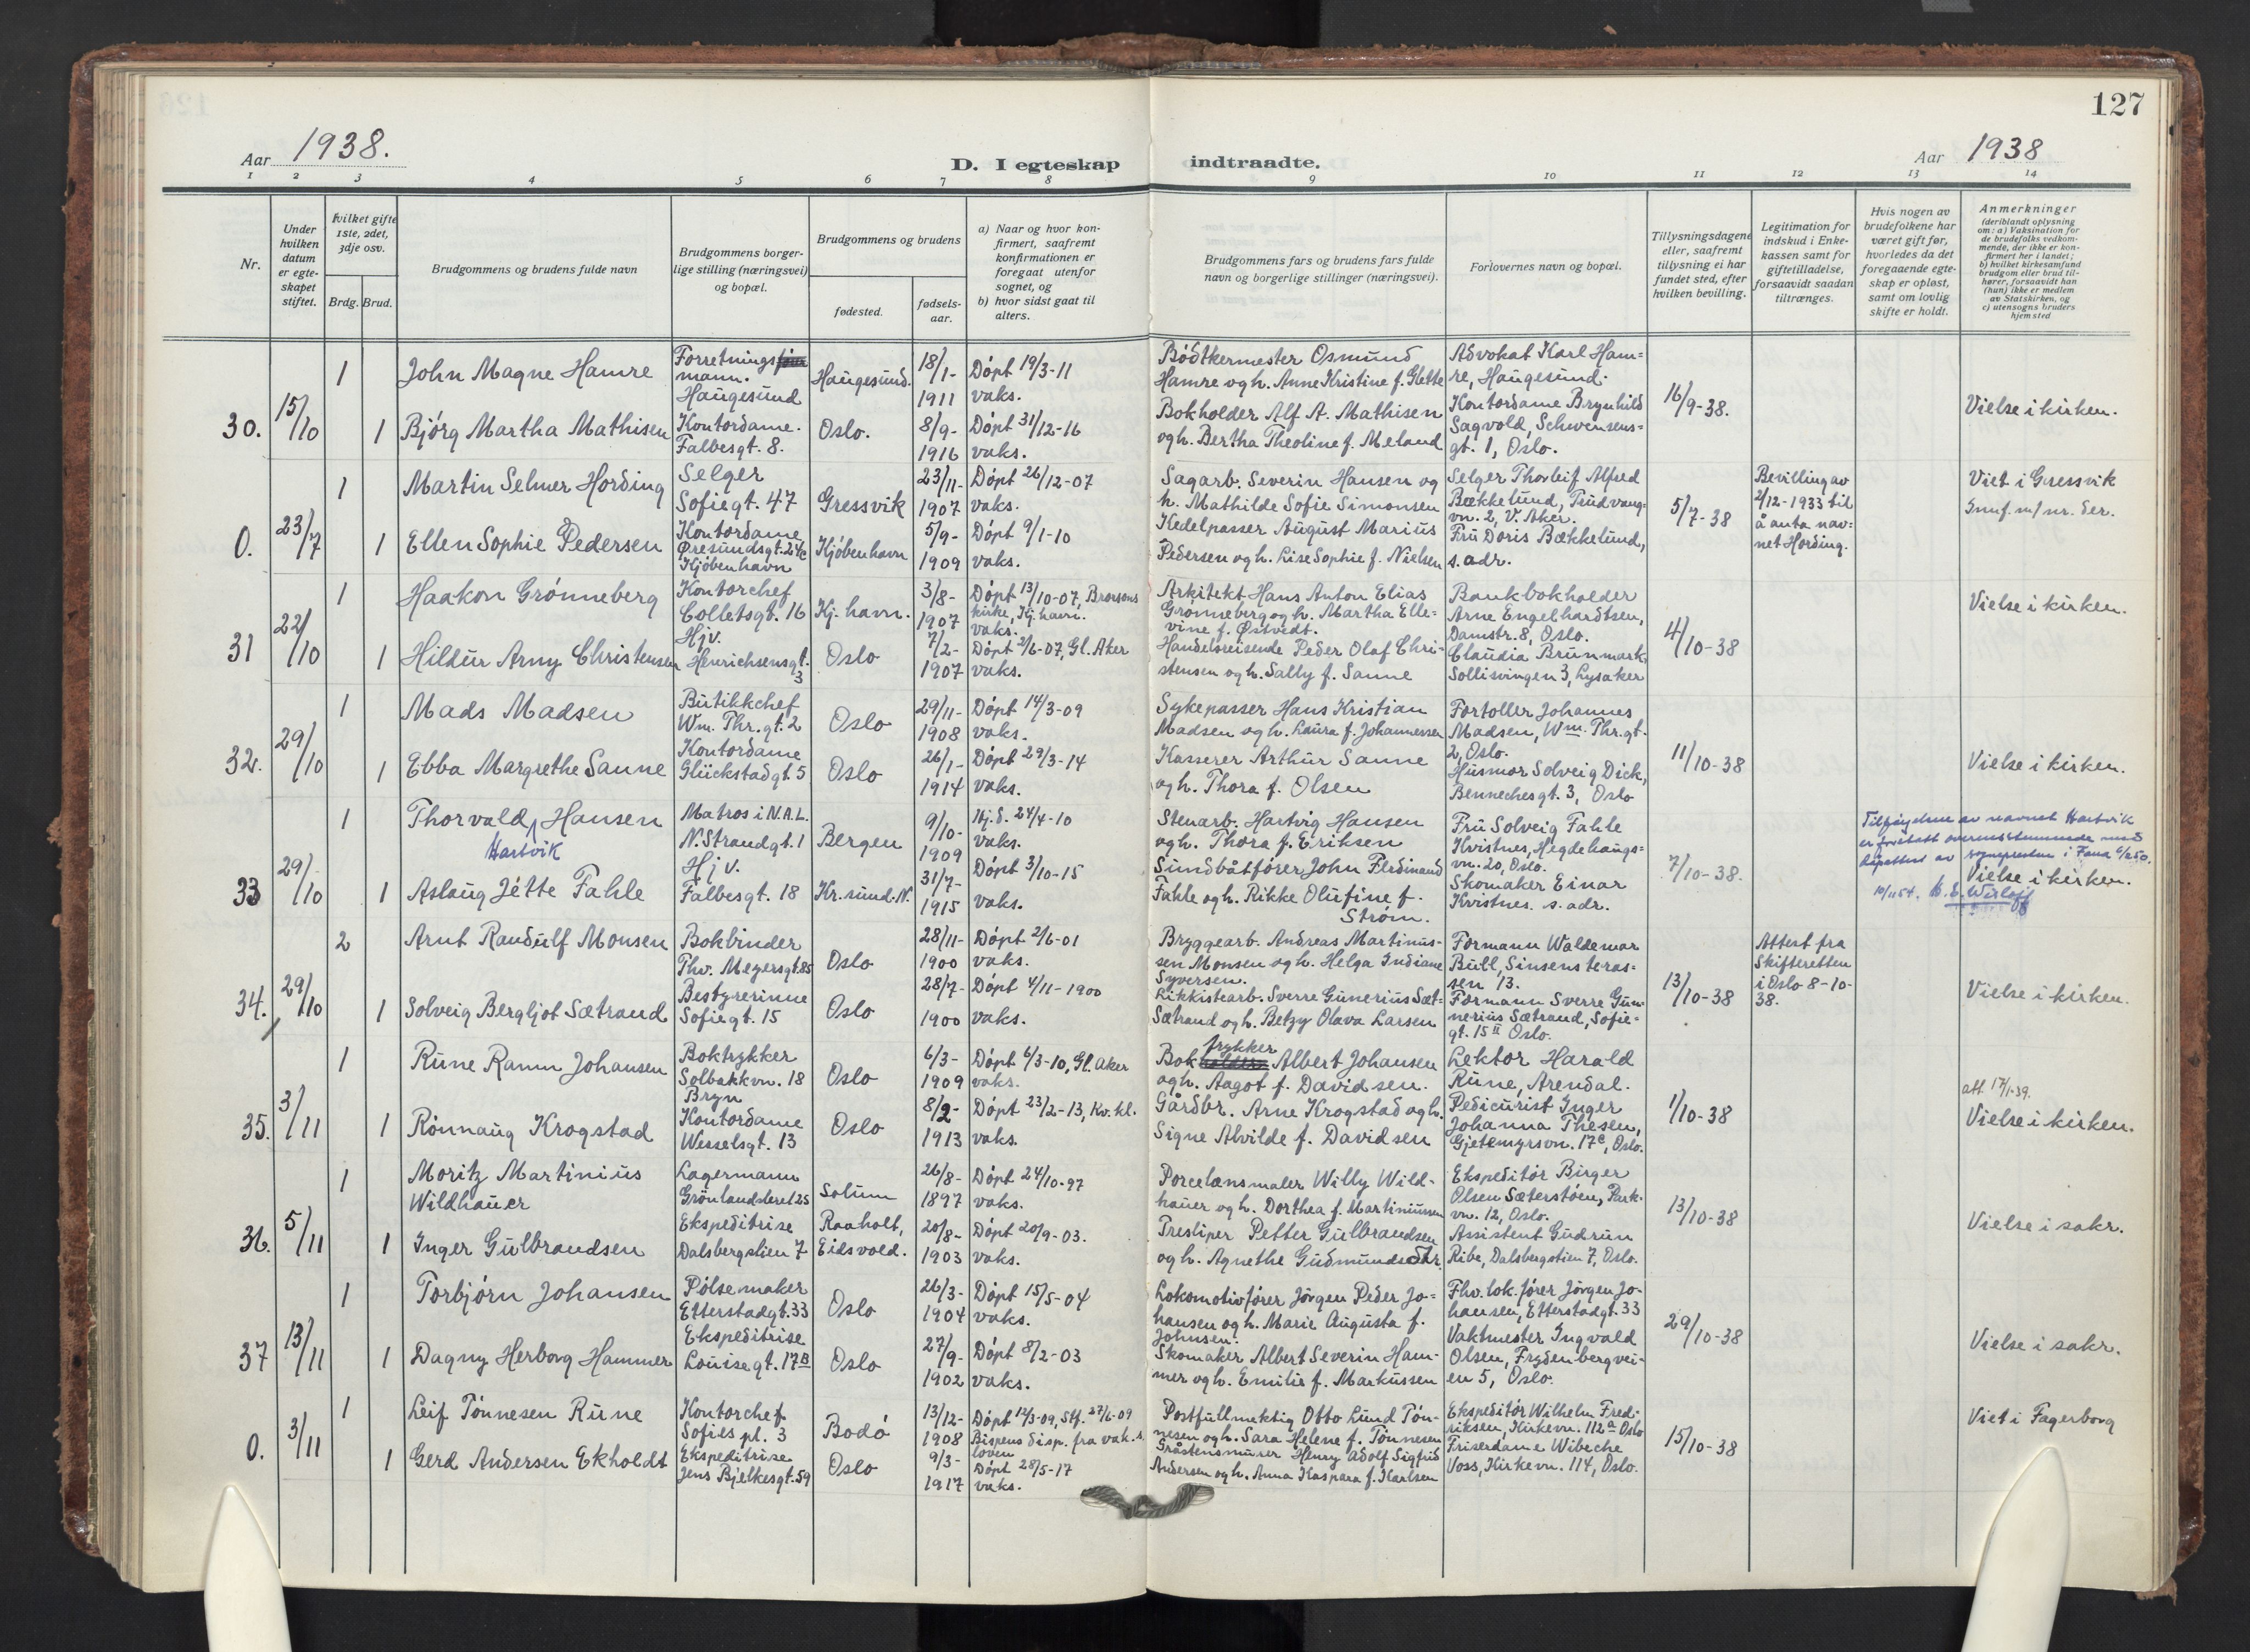 127
Aar 1938.
D. I egteskap indtraadte.
Aar 1938
1 2 3 4 5 6 7 8 9 10 11 12 13 14
Nr.
Under hvilken datum er egteskapet stiftet.
Hvilket gifte 1ste, 2det, 3dje osv.
Brdg. Brud.
Brudgommens og brudens fulde navn
Brudgommens borgerlige stilling (næringsvei) og bopæl.
Brudgommens og brudens
fødested.
fødselsaar.
a) Naar og hvor konfirmert, saafremt konfirmationen er foregaat utenfor sognet, og
b) hvor sidst gaat til alters.
Brudgommens fars og brudens fars fulde navn og borgerlige stillinger (næringsvei).
Forlovernes navn og bopæl.
Tillysningsdagene eller, saafremt tillysning ei har fundet sted, efter hvilken bevilling.
Legitimation for indskud i Enkekassen samt for giftetilladelse, forsaavidt saadan tiltrænges.
Hvis nogen av brudefolkene har været gift før, hvorledes da det foregaaende egteskap er opløst, samt om lovlig skifte er holdt.
Anmerkninger
(deriblandt oplysning om: a) Vaksination for de brudefolks vedkommende, der ikke er konfirmert her i landet; b) hvilket kirkesamfund brudgom eller brud tilhører, forsaavidt han (hun) ikke er medlem av Statskirken, og c) utensogns bruders hjemsted
30. 15/10
1 John Magne Hamre
Forretningsmann. Haugesund
Haugesund.
18/1-1911
Döpt 19/3-11 vaks.
Bödtkermester Osmund Hamre og h. Anne Kristine f. Glette
Advokat Karl Hamre, Haugesund.
1 Björg Martha Mathisen
Kontordame. Falbesgt. 8.
Oslo.
8/9-1916
Döpt 31/12-16 vaks.
Bokholder Alf A. Mathisen og h. Bertha Theoline f. Meland
Kontordame Brynhild Sagvold, Schwensensgt. 1, Oslo.
16/9-38.
Vielse i kirken.
0. 23/7
1 Martin Selmer Hording
Selger Sofiegt. 47
Gressvik
23/11-1907
Döpt 26/12-07 vaks.
Sagarb. Severin Hansen og h. Mathilde Sofie Simonsen
Selger Thorleif Alfred Bækkelund, Trudvangvn. 2, V. Aker.
1 Ellen Sophie Pedersen
Kontordame, Øresundsgt. 24c Kjöbenhavn
Kjöbenhavn
5/9-1909
Döpt 9/1-10 vaks.
Kedelpasser August Marius Pedersen og h. Lise Sophie f. Nielsen
Fru Doris Bækkelund, s. adr.
5/7-38
Bevilling av 2/12-1933 til å anta navnet Hording.
Viet i Gressvik
Innf. m/ nr. her.
31 22/10
1 Haakon Grönneberg
Kontorchef Colletsgt. 16
Kj.havn.
3/8-1907
Döpt 13/10-07, Brorsons kirke, Kj.havn. vaks.
Arkitekt Hans Anton Elias Grönneberg og h. Martha Ellevine f. Østvedt.
Bankbokholder Arne Engelhardtsen, Damstr. 8, Oslo.
1 Hildur Arny Christensen
Hjv. Henrichsensgt. 3
Oslo
7/2-1907
Döpt 2/6-07, Gl. Aker vaks.
Handelsreisende Peder Olaf Christensen og h. Sally f. Sanne
Claudia Brunmark, Sollisvingen 3, Lysaker
4/10-38
Vielse i kirken.
32. 29/10
1 Mads Madsen
Butikkchef Wm. Thr. gt. 2
Oslo
29/11-1908
Döpt 14/3-09 vaks.
Sykepasser Hans Kristian Madsen og h. Laura f. Johannessen
Fortoller Johannes Madsen, Wm. Thr. gt. 2, Oslo.
1 Ebba Margrethe Sanne
Kontordame Glückstadgt. 5
Oslo
26/1-1914
Döpt 29/3-14 vaks.
Kasserer Arthur Sanne og h. Thora f. Olsen
Husmor Solveig Dick, Bennechesgt. 3, Oslo
11/10-38
Vielse i kirken.
33 29/10
1 Thorvald Hartvik Hansen
Matros i N.A.L. N. Strandgt. 1
Bergen
9/10-1909
Hj.d. 24/4-10 vaks.
Stenarb. Hartvig Hansen og h. Thora f. Eriksen
Fru Solveig Fahle Kvistnes, Hegdehaugsvn. 20, Oslo.
1 Aslaug Jétte Fahle
Hjv. Falbesgt. 18
Kr.sund. N.
31/7-1915
Döpt 3/10-15 vaks.
Sundbåtförer John Ferdinand Fahle og h. Rikke Olufine f. Ström.
Skomaker Einar Kvistnes. s. adr.
7/10-38.
Tilföyelsen av navnet Hartvik er foretatt overensstemmende med av sognepresten i Fana
Vielse i kirken.
34. 29/10
2 Arnt Randulf Monsen
Bokbinder Thv. Meyersgt. 85
Oslo
28/11-1900
Döpt 2/6-01 vaks.
Bryggearb. Andreas Martinussen Monsen og h. Helga Indiane Syversen.
Formann Waldemar Bull, Sinsenterassen 13.
1 Solveig Bergljot Sætrand
Bestyrerinne Sofiegt. 15
Oslo
28/7-1900
Döpt 4/11-1900 vaks.
Likkistearb. Sverre Gunerius Sæt- Sætrand og h. Betzy Olava Larsen
Formann Sverre Gunnerius Sætrand, Sofiegt. 15 II Oslo.
13/10-38
Attest fra Skifteretten i Oslo 8-10-38.
Vielse i kirken.
35. 3/11
1 Rune Ramm Johansen
Boktrykker Solbakkvn. 18 Bryn
Oslo
6/3-1909
Döpt 6/3-10, Gl. Aker vaks.
Boktrykker Albert Johansen og h. Aagot f. Davidsen.
Lektor Harald Rune, Arendal.
1 Rönnaug Krogstad
Kontordame Wesselsgt. 13
Oslo
8/2-1913
Döpt 23/2-13, Kv.kl. vaks.
Gårdbr. Arne Krogstad og h. Signe Alvilde f. Davidsen
Pedicurist Inger Johanna Thesen, Gjetemyrsvn. 17c, Oslo.
1/10-38
att. 17/1-39.
Vielse i kirken.
36. 5/11
1 Moritz Martinius Wildhauer
Lagermann Grönlandsleret 25
Solum
26/8-1897
Döpt 24/10-97 vaks.
Porcelænsmaler Willy Wildhauer og h. Dorthea f. Martiniussen
Ekspeditör Birger Olsen Sæterstöen, Parkvn. 12, Oslo.
1 Inger Gulbrandsen
Ekspeditrise Dalsbergstien 7
Raaholt, Eidsvold.
20/8-1903
Döpt 20/9-03. vaks.
Tresliper Petter Gulbrandsen og h. Agnethe Gudmundsdtr.
Assistent Gudrun Ribe, Dalsbergstien 7, Oslo.
13/10-38
Vielse i sakr.
37 13/11
1 Torbjörn Johansen
Pölsemaker Etterstadgt. 33
Oslo
26/3-1904
Döpt 15/5-04 vaks.
Lokomotivförer Jörgen Peder Johansen og h. Marie Augusta f. Johnsen.
Fhv. lok.förer Jörgen Johansen, Etterstadgt. 33
1 Dagny Herborg Hammer
Ekspeditrise Louisegt. 17B
Oslo
27/9-1902
Döpt 8/2-03 vaks.
Skomaker Albert Severin Hammer og h. Emilie f. Markussen
Vaktmester Ingvald Olsen, Frydenbergveien 5, Oslo.
29/10-38
Vielse i sakr.
0. 3/11
1 Leif Tönnesen Rune
Kontorchef Sofies pl. 3
Bodö
13/12-1908
Döpt 12/3-09, Stf. 27/6-09 Bispens disp. fra vak.s. loven
Postfullmektig Otto Lund Tönnesen og h. Sara Helene f. Tönnesen
Ekspeditör Wilhelm Fredriksen, Kirkevn. 112a Oslo
1 Gerd Andersen Ekholdt
Ekspeditrise Jens Bjelkesgt. 59
Oslo
9/3-1917
Döpt 28/5-17 vaks.
Gråstensmurer Henry Adolf Sigfrid Andersen og h. Anna Kaspara f. Karlsen
Friserdame Wibeche Voss, Kirkevn. 114, Oslo.
15/10-38
Viet i Fagerborg